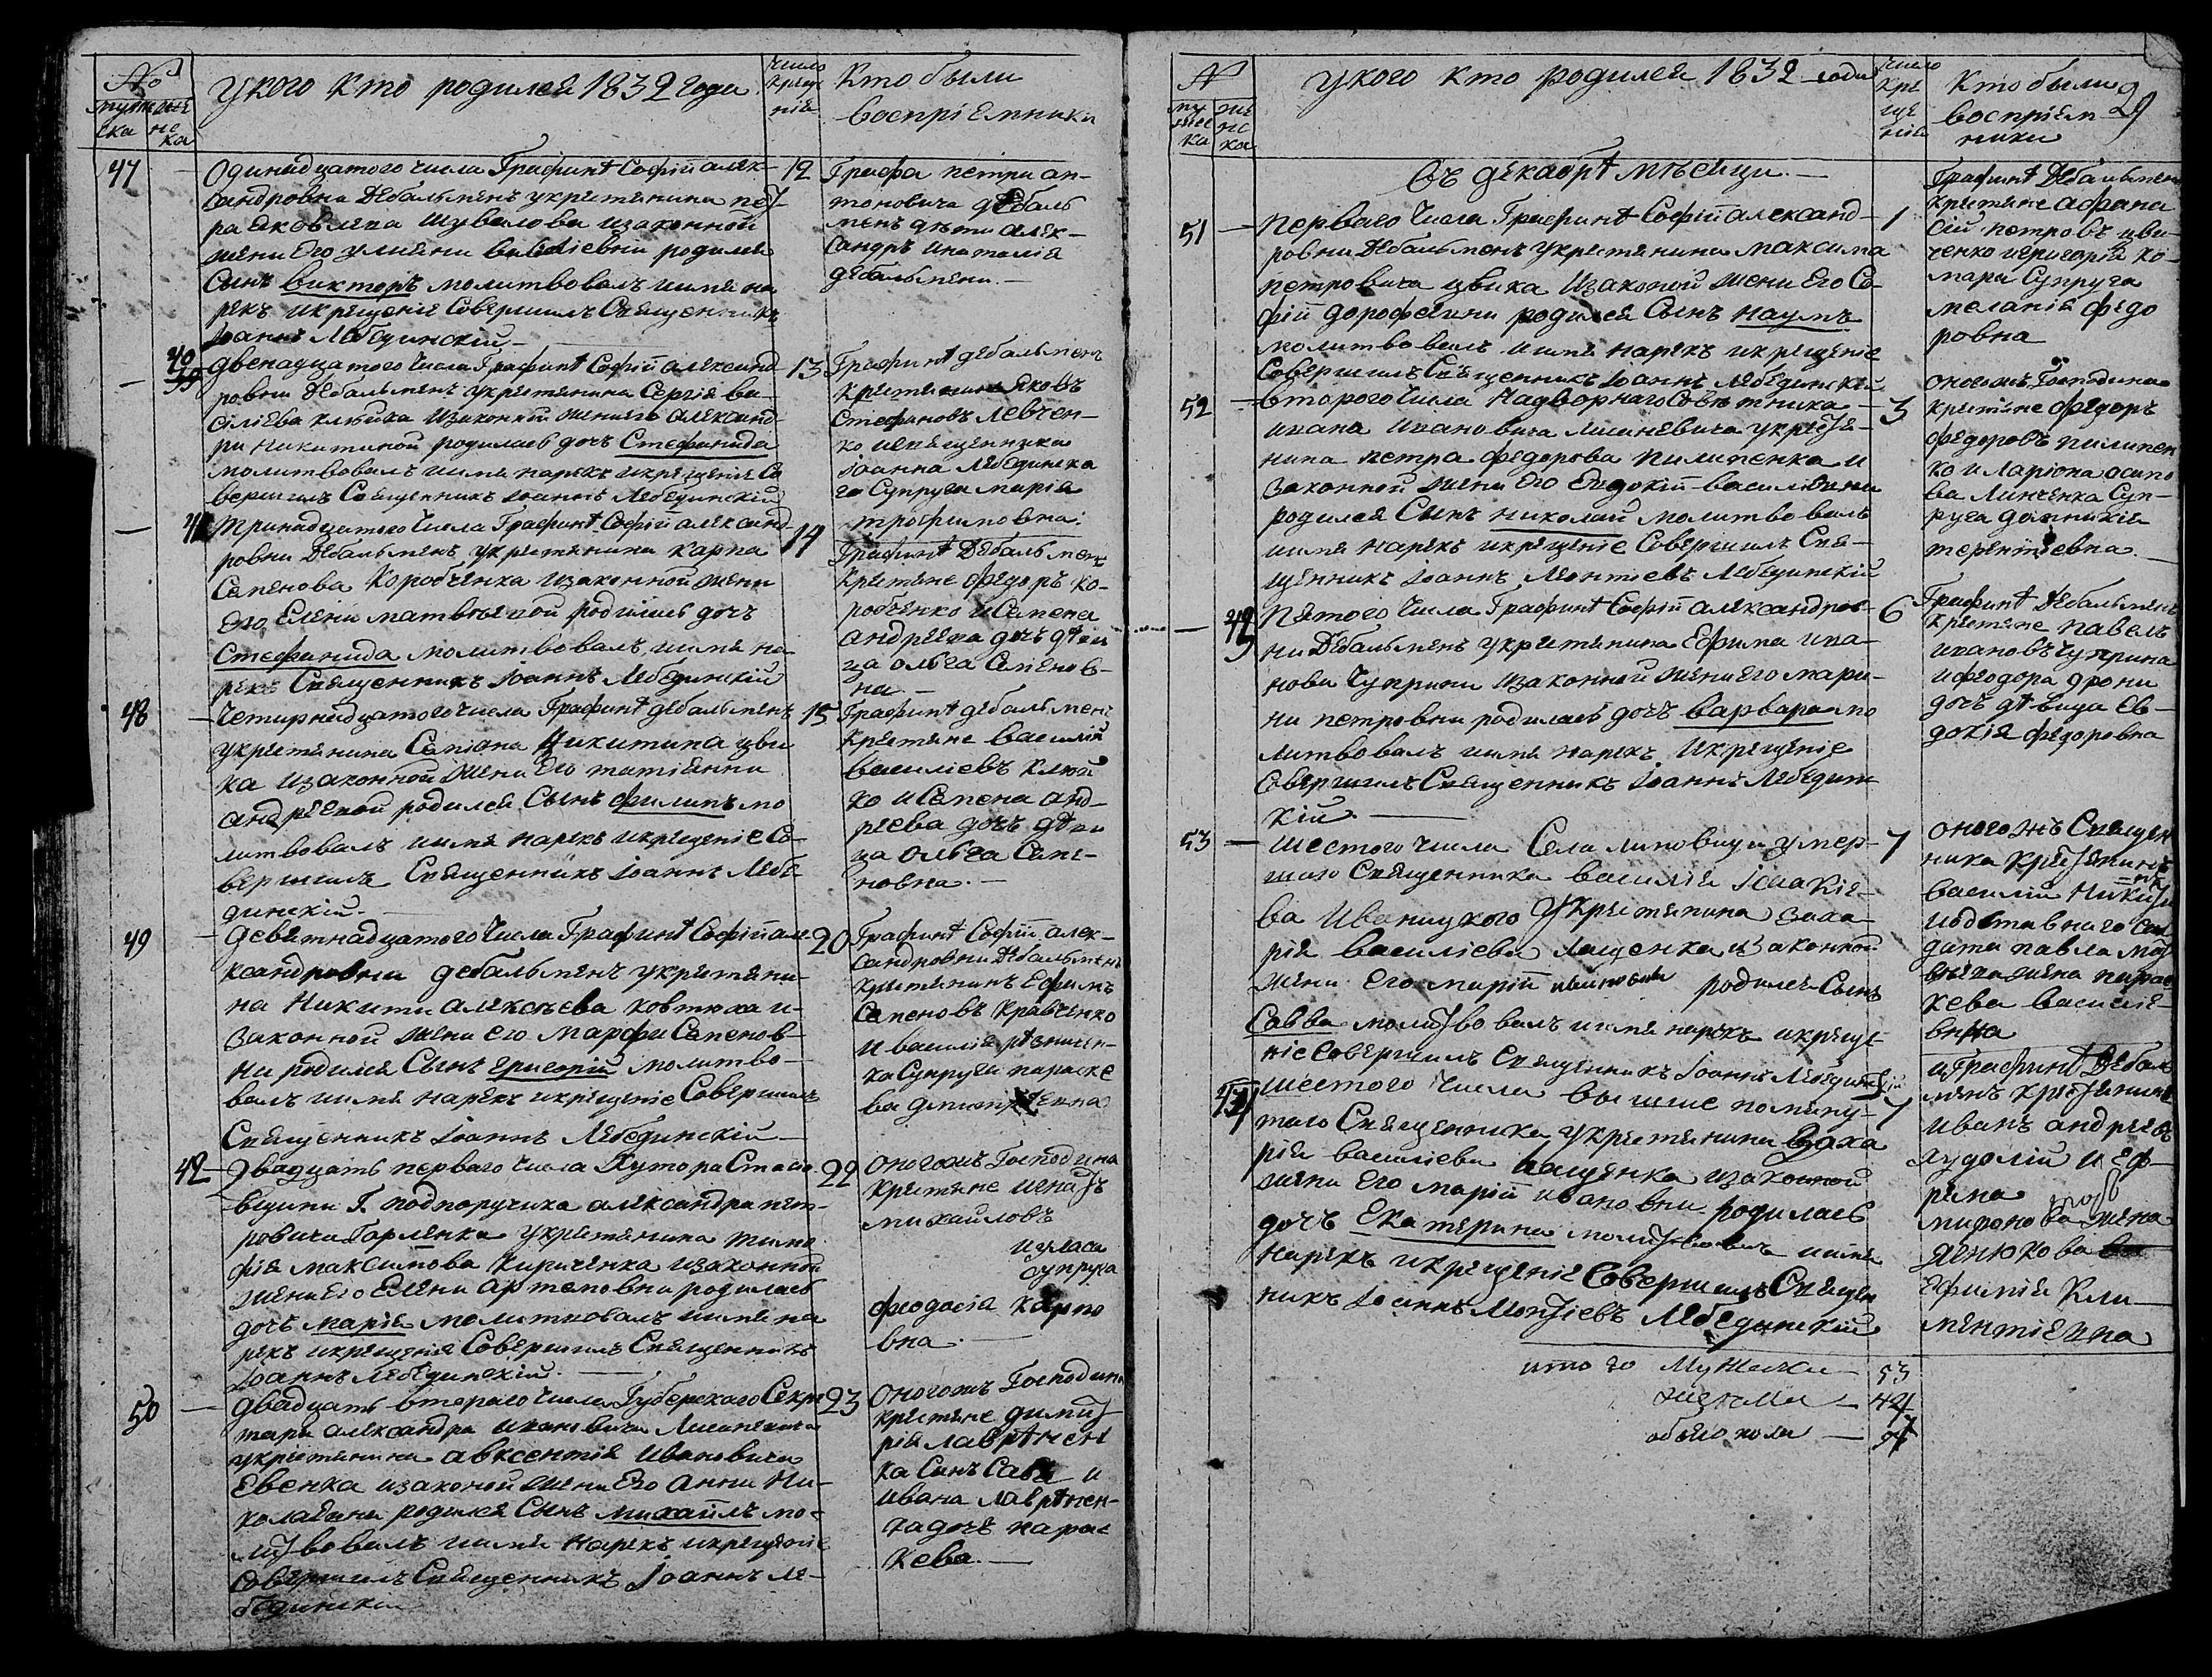 №
мужеска
женска
укого кто родился 1832 года
число крещенія
Кто были
воспріемники
47
Одинадцатого числа Графинѣ Софіи алек-
сандровни Дебальменъ укрестянина пет-
ра Яковлева Шувалова изаконной
жени Его улияни василіевни родился
Сынъ викторъ молитвовалъ имя на
рекъ икрещеніе Совершилъ Священникъ
Іоаннъ Лебединскій
12
Графа петра ан-
тоновича дебаль
менъ дѣти алек-
сандръ инаталія
дебальмени.
40
двенадцатого числа Графинѣ Софіи александ-
ровни Дебальменъ укрестянина Сергія ва-
силіева клюйка изаконной жени его александ-
ри никитиной родилась дочъ Стефанида
молитвовалъ имя нарекъ икрещеніе Со
вершилъ Священникъ Іоаннъ Лебединскій
13
Графинѣ дебальменъ
Крестянинъ Яковъ
Стефановъ Левчен-
ко исвященника
Іоанна Лебединска
го Супруга марія
трофимовна.
41
тринадцатого числа Графинѣ Софіи александ-
ровни Дебальменъ укрестянина карпа
Семенова Коробченка изаконной жени
Его Елени матвѣевной родилась дочъ
Стефанида молитвовалъ имя на-
рекъ Священникъ Іоаннъ Лебединскій
14
Графинѣ Дебальменъ
Крестяне федоръ ко-
робченко иСемена
андреева дочъ дѣви
ца ольга Семенов-
на
48
Четирнадцатого числа Графинѣ дебальменъ
укрестянина Семіона Никитина цви
ка изаконной жени Его татіянни
андреевой родился Сынъ филипъ мо
литвовалъ имя нарекъ икрещеніе Со-
вершилъ Священникъ Іоаннъ Лебе-
динскій.
15
Графинѣ дебальменъ
крестяне василій
василіевъ клюй
ко иСемена анд-
реева дочъ дѣви
ца Ольга Семе-
новна.
49
девятнадцатого числа Графинѣ Софіи але-
ксандровни дебальменъ укрестяни-
на Никити алексѣева ковтюха и-
законной жени его марфи Семенов-
ни родился Сынъ григорій молитво-
валъ имя нарекъ икрещеніе Совершилъ
Священникъ Іоаннъ Лебединскій
20
Графинѣ Софіи алек-
сандровни Дебальменъ
крестянинъ Ефимъ
Семеновъ Кравченко
и василія рѣзничен-
ка Супруга параске
ва дмитріевна
42
двадцать перваго числа Хутора Стасо-
вщини Г. подпоручика александра пет-
ровича Горленка укрестянина тимо
фія максимова Кириченка изаконной
жени Его Елени артемовни родилась
дочъ марія молитвовалъ имя на
рекъ икрещеніе Совершилъ Священникъ
Іоаннъ Лебединскій.
22
Оногожъ Господина
крестяне игнатъ
михаиловъ
ивласа
супруга
феодосія карпо
вна.
50
двадцать втораго числа Губерскаго Секре
таря александра ивановича Лисаневича
укрестянина авксентія Ивановича
Евенка изаконой жени Его анни Ни-
колаевни родился Сынъ михаилъ мо-
литвовалъ имя нарекъ икрещеніе
Совершилъ Священникъ Іоаннъ Ле-
бединскій
23
Оногожъ Господина
крестяне димит
рія лаврѣнен
ка Синъ Сава и
ивана лаврѣнен-
ка дочъ парас
кева.
№
мужеска
женска
укого кто родился 1832 года
число крещенія
Кто были
воспріем
ники
29
Въ декабрѣ мѣсяци.
51
перваго числа Графинѣ Софіи александ-
ровни Дебальменъ укрестянина максима
петровича цвика изаконой жени Его Со-
фіи дорофеевни родился Сынъ наумъ
молитвовалъ имя нарекъ икрещеніе
Совершилъ Священникъ Іоаннъ Лебединскій
1
Графинѣ Дебальменъ
крестяне афана
сій петровъ цви
ченко игригорія ко-
мара Супруга
меланія федо
ровна
52
второго числа Надворнаго Совѣтника
ивана ивановича Лисаневича укрестя-
нина петра федорова пилипенка и
законной жени Его Евдокіи василіевни
родился Сынъ николай молитвовалъ
имя нарекъ икрещеніе Совершилъ Свя-
щенникъ Іоаннъ Леонтіевъ Лебединскій
3
оногожъ Господина
крестяне федоръ
федоровъ пилипен
ко иларіона осипо
ва Линченка Суп-
руга домникія
терентіевна.
43
пятого числа Графинѣ Софіи александров-
ни Дебальменъ укрестянина Ефима ива-
нова Чуприни изаконной жени Его мари-
ни петровни родилась дочъ варвара мо
литвовалъ имя нарекъ икрещеніе
Совершилъ Священникъ Іоаннъ Лебединс
кій.
6
Графинѣ Дебальменъ
крестяне павелъ
ивановъ Чуприна
ифеодора дрони
дочъ дѣвица Ев-
докія федоровна
53
шестого числа Села липовици умер-
шаго Священника василія Ісакіе-
ва Иваницкого укрестянина заха
рія василіева лащенка изаконной
жени Его маріи ивановни родился Сынъ
Савва молитвовалъ имя нарекъ икреще-
ніе Совершилъ Священникъ Іоаннъ Лебединскій
7
оногожъ Священ
ника крестянинъ
василій Никит
иодставнаго Сол
дата павла мат
вѣева жена парас
кева василіе-
вна
44
шестого числа вышше помяну-
таго Священника укрестянина Заха
рія василіева лащенка изаконной
жени Его маріи ивановни родилась
дочъ Екатерина молитвовалъ имя
нарекъ икрещеніе Совершилъ Священ
никъ Іоаннъ Леонтіевъ Лебединскій
7
и Графинѣ Дебаль
менъ крестянинъ
иванъ андреевъ
худолій иеф
рема
миронова жена
Ефимія Кли-
ментіевна
итого мужеска — 53
женска — 44
обоего пола — 97